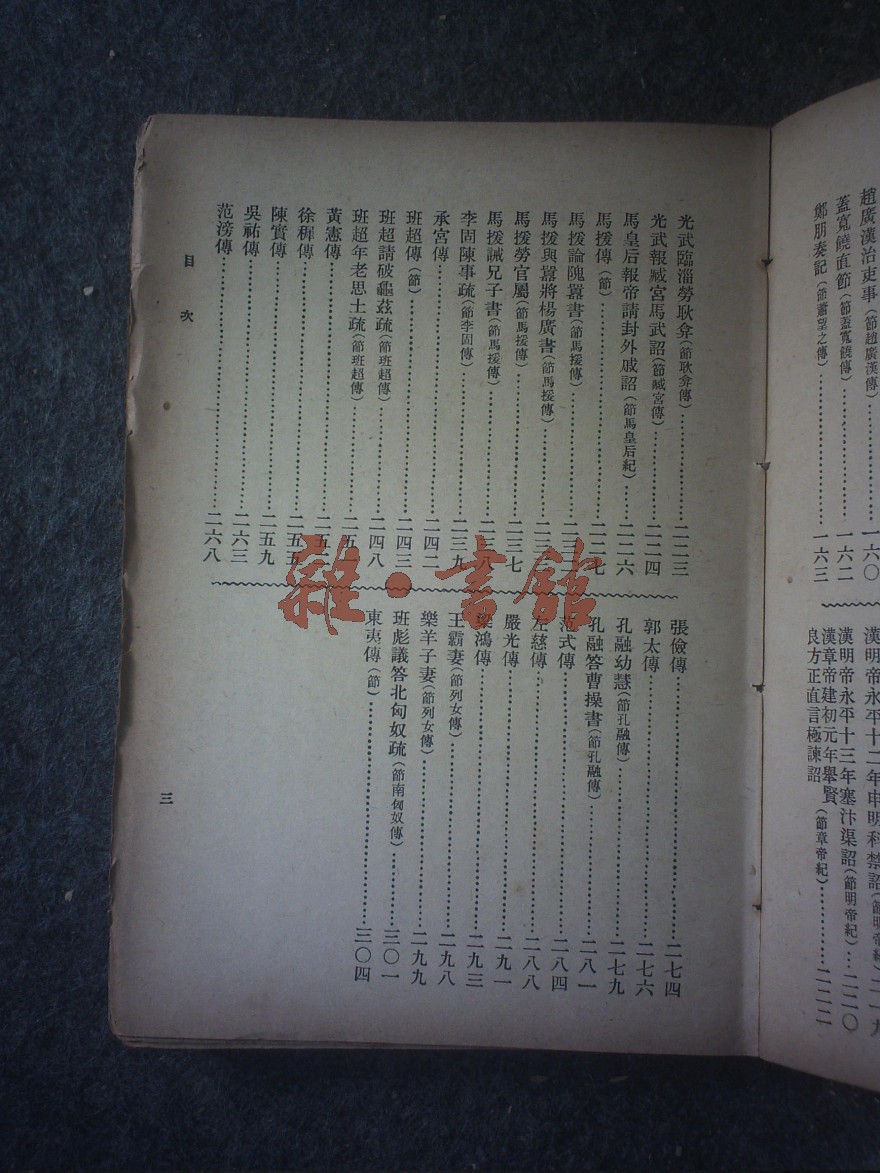 趙廣漢治吏事(節趙廣漢傳)……一六〇
蓋寬饒直節(節蓋寬饒傳)……一六二
鄭朋奏記(節蕭望之傳)……一六三
漢明帝永平十二年申明科禁詔(節明帝紀)二一九
漢明帝永平十三年塞汴渠詔(節明帝紀)…二二〇
漢章帝建初元年舉賢
良方正直言極諫詔(節章帝紀)……二二二
光武臨淄勞耿弇(節耿弇傳)……二二三
光武報臧宮馬武詔(節臧宮傳)……二二四
馬皇后報帝請封外戚詔(節馬皇后紀)…二二六
馬援傳(節)……二二七
馬援論隗囂書(節馬援傳)……二三
馬援與囂將楊廣書(節馬援傳)……二三
馬援勞官屬(節馬援傳)……二三七
馬援誡兄子書(節馬援傳)……二三八
李固陳事疏(節李固傳)……二三九
承宮傳……二四二
班超傳(節)……二四三
班超請破龜茲疏(節班超傳)……二四八
班超年老思土疏(節班超傳)……二五一
黃憲傳……二五
徐稺傳……二五五
陳實傳……二五九
吳祐傳……二六三
范滂傳……二六八
張儉傳……二七四
郭太傳……二七六
孔融幼慧(節孔融傳)……二七九
孔融答曹操書(節孔融傳)……二八一
范式傳……二八四
左慈傳……二八八
嚴光傳……二九一
梁鴻傳……二九三
王霸妻(節列女傳)……二九八
樂羊子妻(節列女傳)……二九九
班彪議答北匈奴疏(節南匈奴傳)……三〇一
東夷傳(節)……三〇四
目次
三
雜·書館